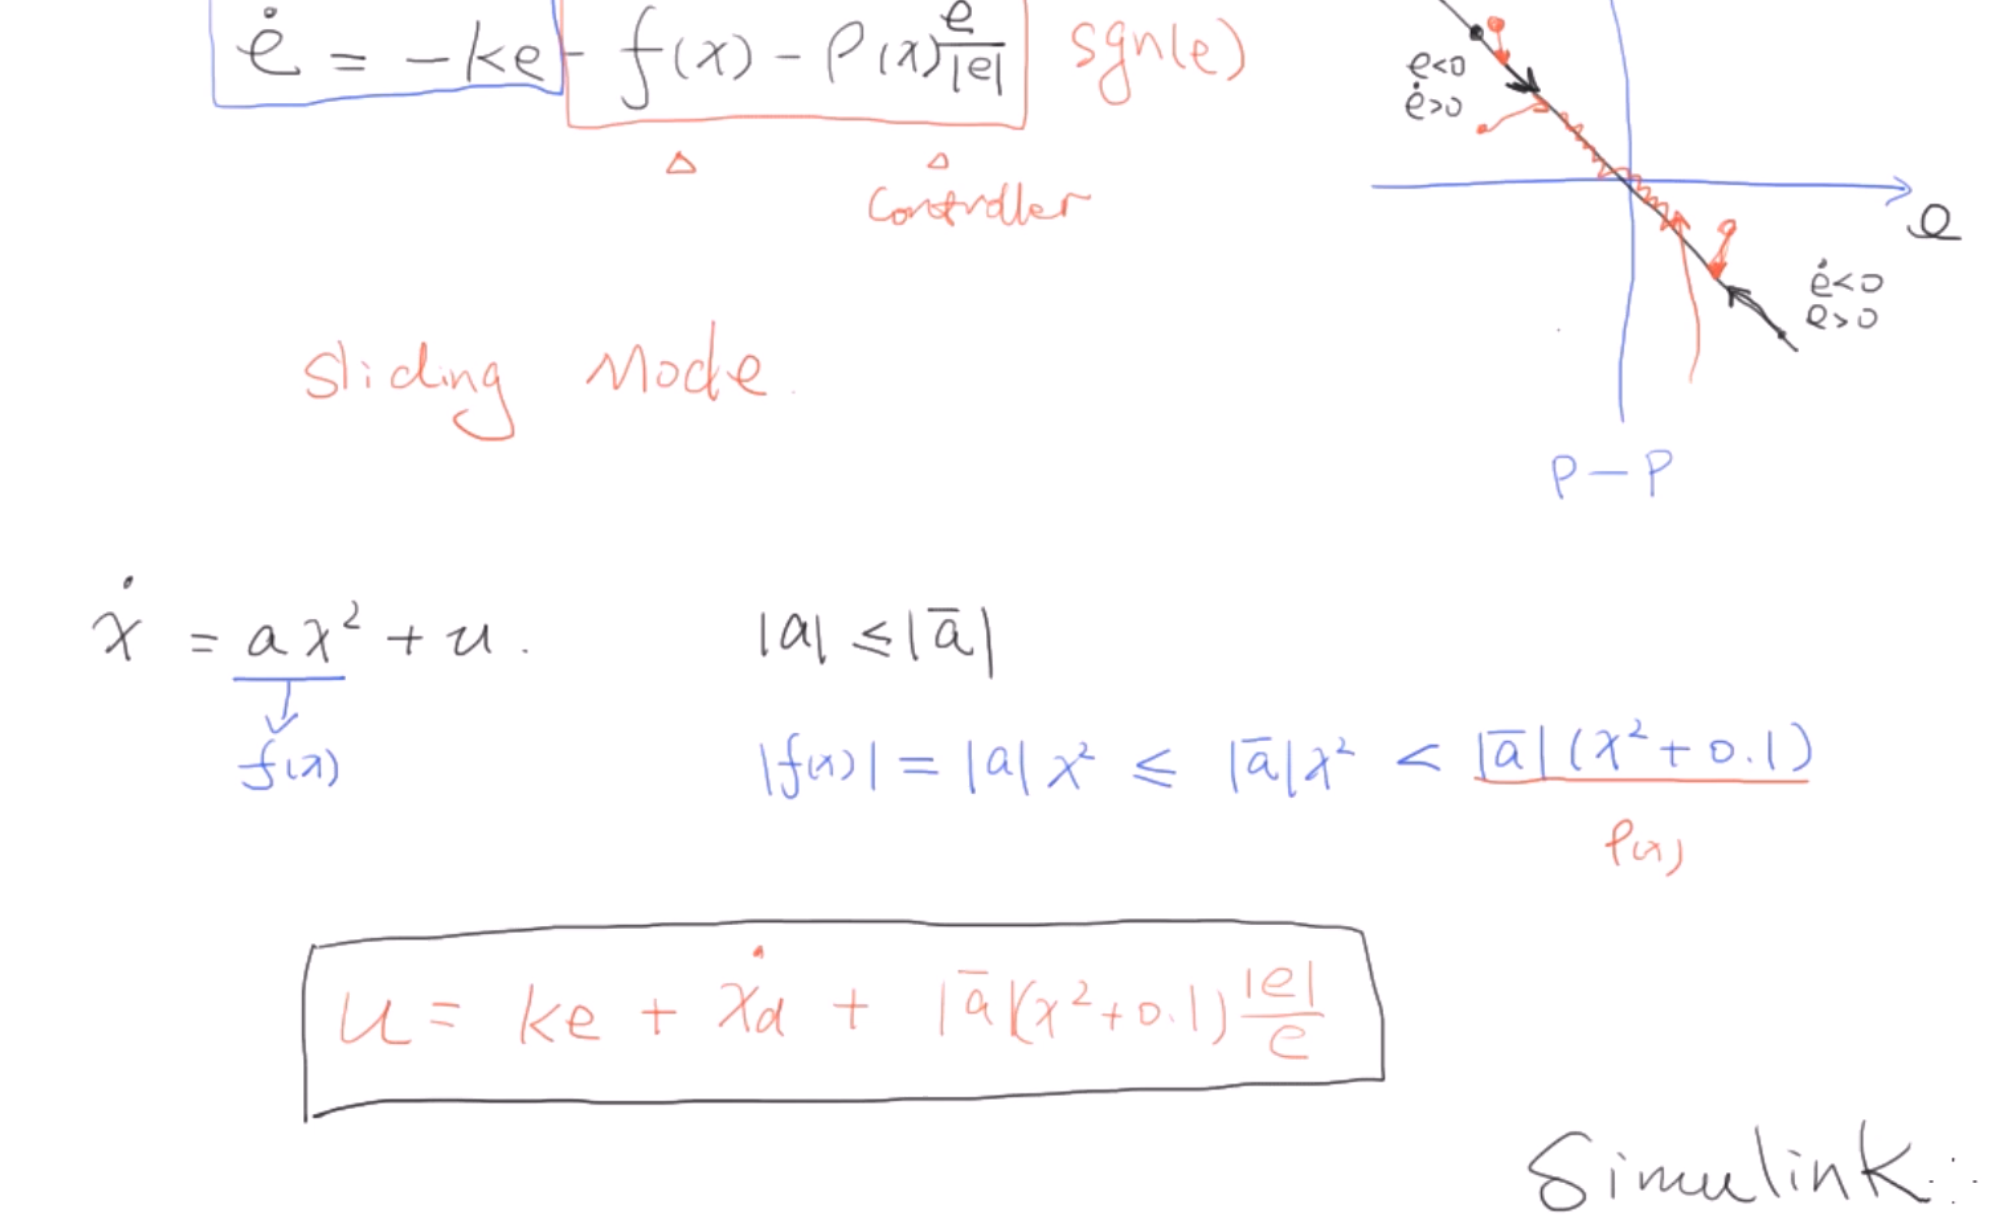 ė = -ke - f(x) - ρ(x) e/|e| sgn(e)
e<0
ė>0
△ △
Controller
e
ė<0
e>0
Sliding Mode.
P-P
ẋ = ax² + u. |a| ≤ |ā|
f(x) |f(x)| = |a|x² ≤ |ā|x² < |ā|(x²+0.1)
ρ(x)
u = ke + ẋd + |ā|(x²+0.1) |e|/e
Simulink